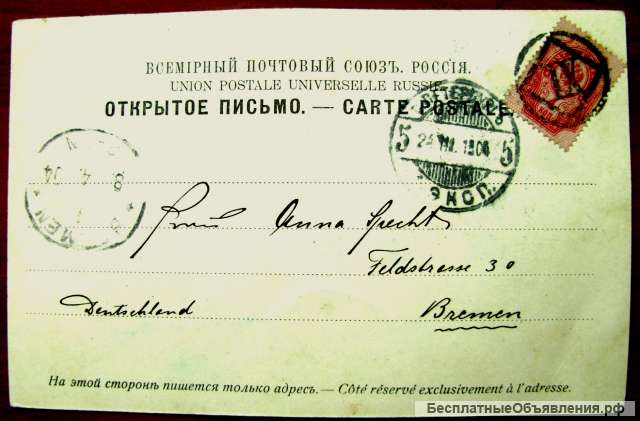 ВСЕМІРНЫЙ ПОЧТОВЫЙ СОЮЗЪ. РОССІЯ.
UNION POSTALE UNIVERSELLE RUSSIE.
ОТКРЫТОЕ ПИСЬМО. — CARTE POSTALE.
IX
5 5
ЭКСП.
8 4 04
MEN
Anna Specht
Feldstrasse 30
Deutschland Bremen
На этой сторонѣ пишется только адресъ. — Côté réservé exclusivement à l'adresse.
БесплатныеОбъявления.рф